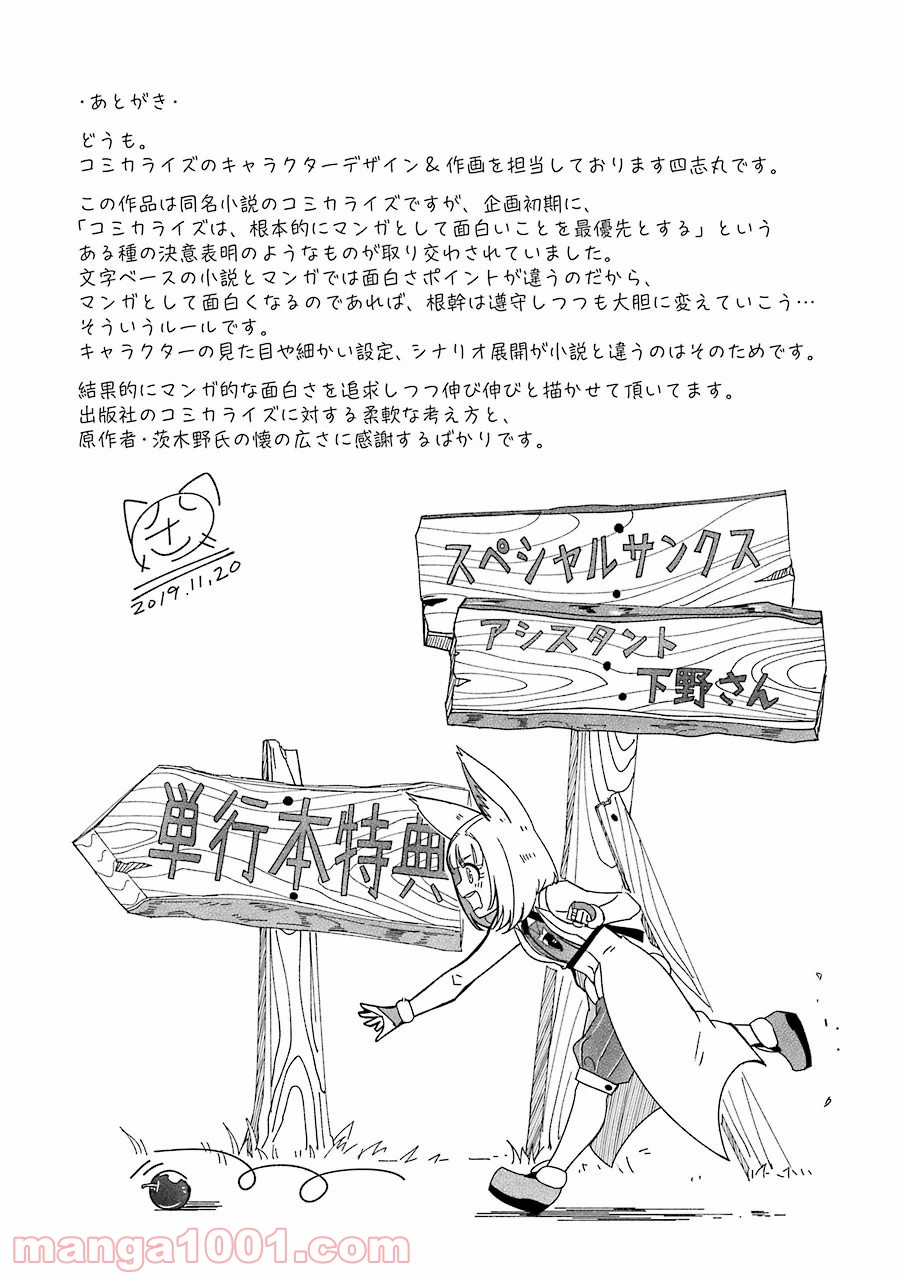 ・あとがき・
どうも。
コミカライズのキャラクターデザイン＆作画を担当しております四志丸です。
この作品は同名小説のコミカライズですが、企画初期に、
「コミカライズは、根本的にマンガとして面白いことを最優先とする」という
ある種の決意表明のようなものが取り交わされていました。
文字ベースの小説とマンガでは面白さポイントが違うのだから、
マンガとして面白くなるのであれば、根幹は遵守しつつも大胆に変えていこう…
そういうルールです。
キャラクターの見た目や細かい設定、シナリオ展開が小説と違うのはそのためです。
結果的にマンガ的な面白さを追求しつつ伸び伸びと描かせて頂いてます。
出版社のコミカライズに対する柔軟な考え方と、
原作者・茨木野氏の懐の広さに感謝するばかりです。
2019.11,20
スペシャルサンクス
アシスタント
下野さん
単行本特典
manga1001.com